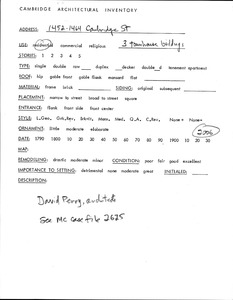 CAMBRIDGE ARCHITECTURAL INVENTORY
ADDRESS: 1452-1464 Cambridge St
USE: residential commercial religious 3 townhouse bldgs
STORIES: 1 2 3 4 5
TYPE: single double row duplex decker double d tenement apartment
ROOF: hip gable front gable flank mansard flat
MATERIAL: frame brick SIDING: original subsequent
PLACEMENT: narrow to street broad to street square
ENTRANCE: flank front side front center
STYLE:
ORNAMENT: little moderate elaborate 2006
DATE: 1790 1800 10 20 30 40 50 60 70 80 90 1900 10 20 30
MAP:
REMODELING: drastic moderate minor CONDITION: poor fair good excellent
IMPORTANCE TO SETTING: detrimental none moderate great INITIALED:
DESCRIPTION:
David Perry, architects
See MC case file 2625